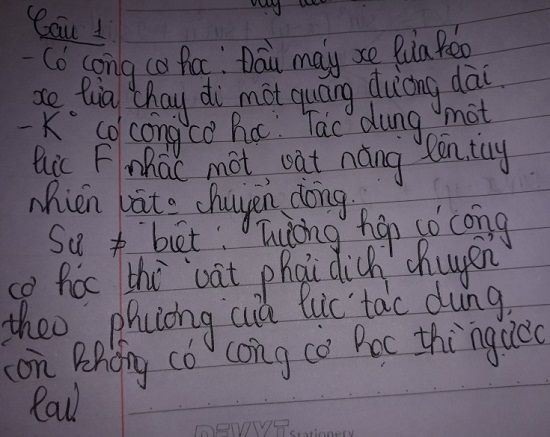 Câu 1:
- Có công cơ học: Đầu máy xe lửa kéo
xe lửa chạy đi một quãng đường dài.
- K° có công cơ học: Tác dụng một
lực F nhấc một vật nặng lên, tuy
nhiên vật o chuyển động.
Sự ≠ biệt: Trường hợp có công
cơ học thì vật phải dịch chuyển
theo phương của lực tác dụng,
còn không có công cơ học thì ngược
lại
DEVYT Stationery